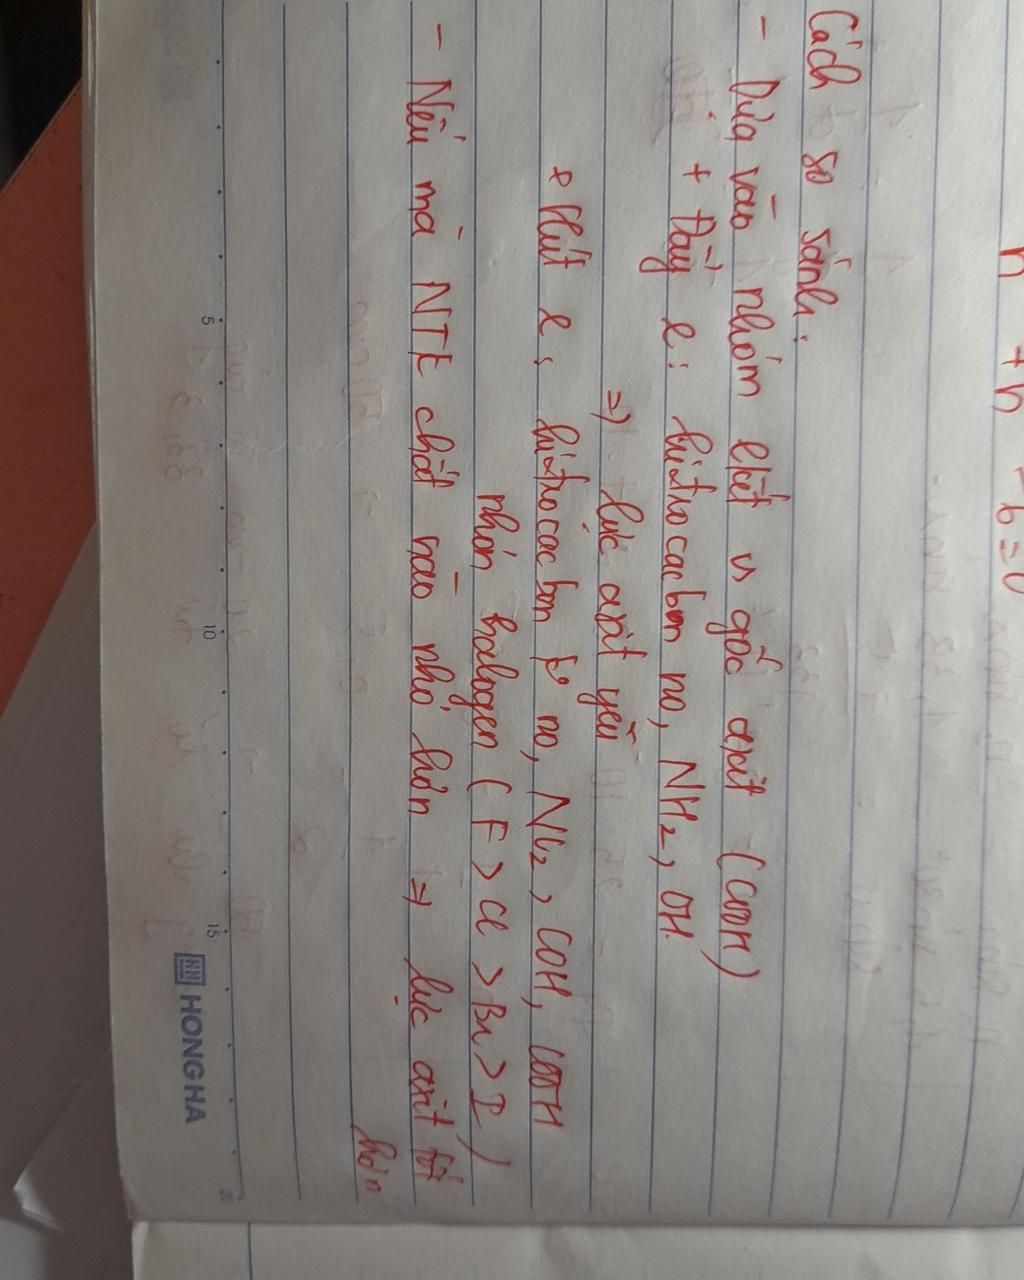 h + h - b = 0
Cách so sánh:
- Dựa vào nhóm lkết vs gốc axit (COOH)
+ Đẩy e: hiđrocacbon no, NH2, OH.
=) lực axit yếu
+ Hút e: hiđrocacbon ko no, NO2, COH, COOH
nhóm halogen (F > Cl > Br > I)
- Nếu mà NTK chất nào nhỏ hơn => lực axit tốt
hơn
5 10 15 20
HONG HA